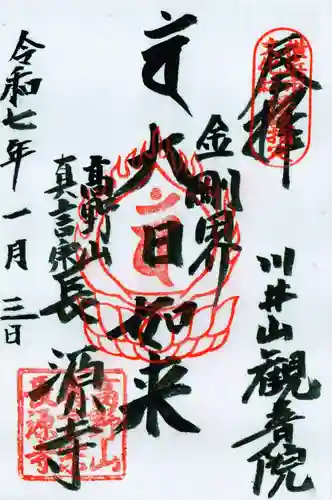 奉拝
川井山観音院
金剛界
大日如来
高野山
真言宗
長源寺
令和七年一月三日
高野山
真言宗
長源寺